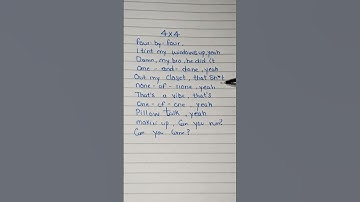 4x4
Four by four
I tint my windows up, yeah
Damn, my bro, he did it
One - and - done, yeah
Out my closet, that Sh*t
None - of - none, yeah
That's a vibe, that's
One - of - one, yeah
Pillow talk, yeah
makin' up, Can you run?
Can you come?